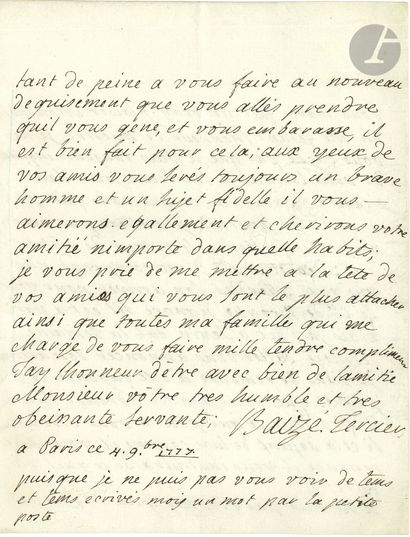 tant de peine a vous faire au nouveau
deguisement que vous allés prendre
quil vous gene, et vous embarasse, il
est bien fait pour cela; aux yeux de
vos amis vous serés toujours un brave
homme et un sujet fidelle il vous —
aimerons egallement et cherirons votre
amitié nimporte dans quelle habits;
je vous prie de me mettre a la tete de
vos amies qui vous sont le plus attacher
ainsi que toutes ma famille qui me
charge de vous faire mille tendre complimen
Jay lhonneur detre avec bien de lamitie
Monsieur vôtre tres humble et tres
obeissante servante; Baizé Tercier
a Paris ce 4. 9.bre 1777.
puisque je ne puis pas vous voir de tems
et tems ecrivés moy un mot par la petite
poste